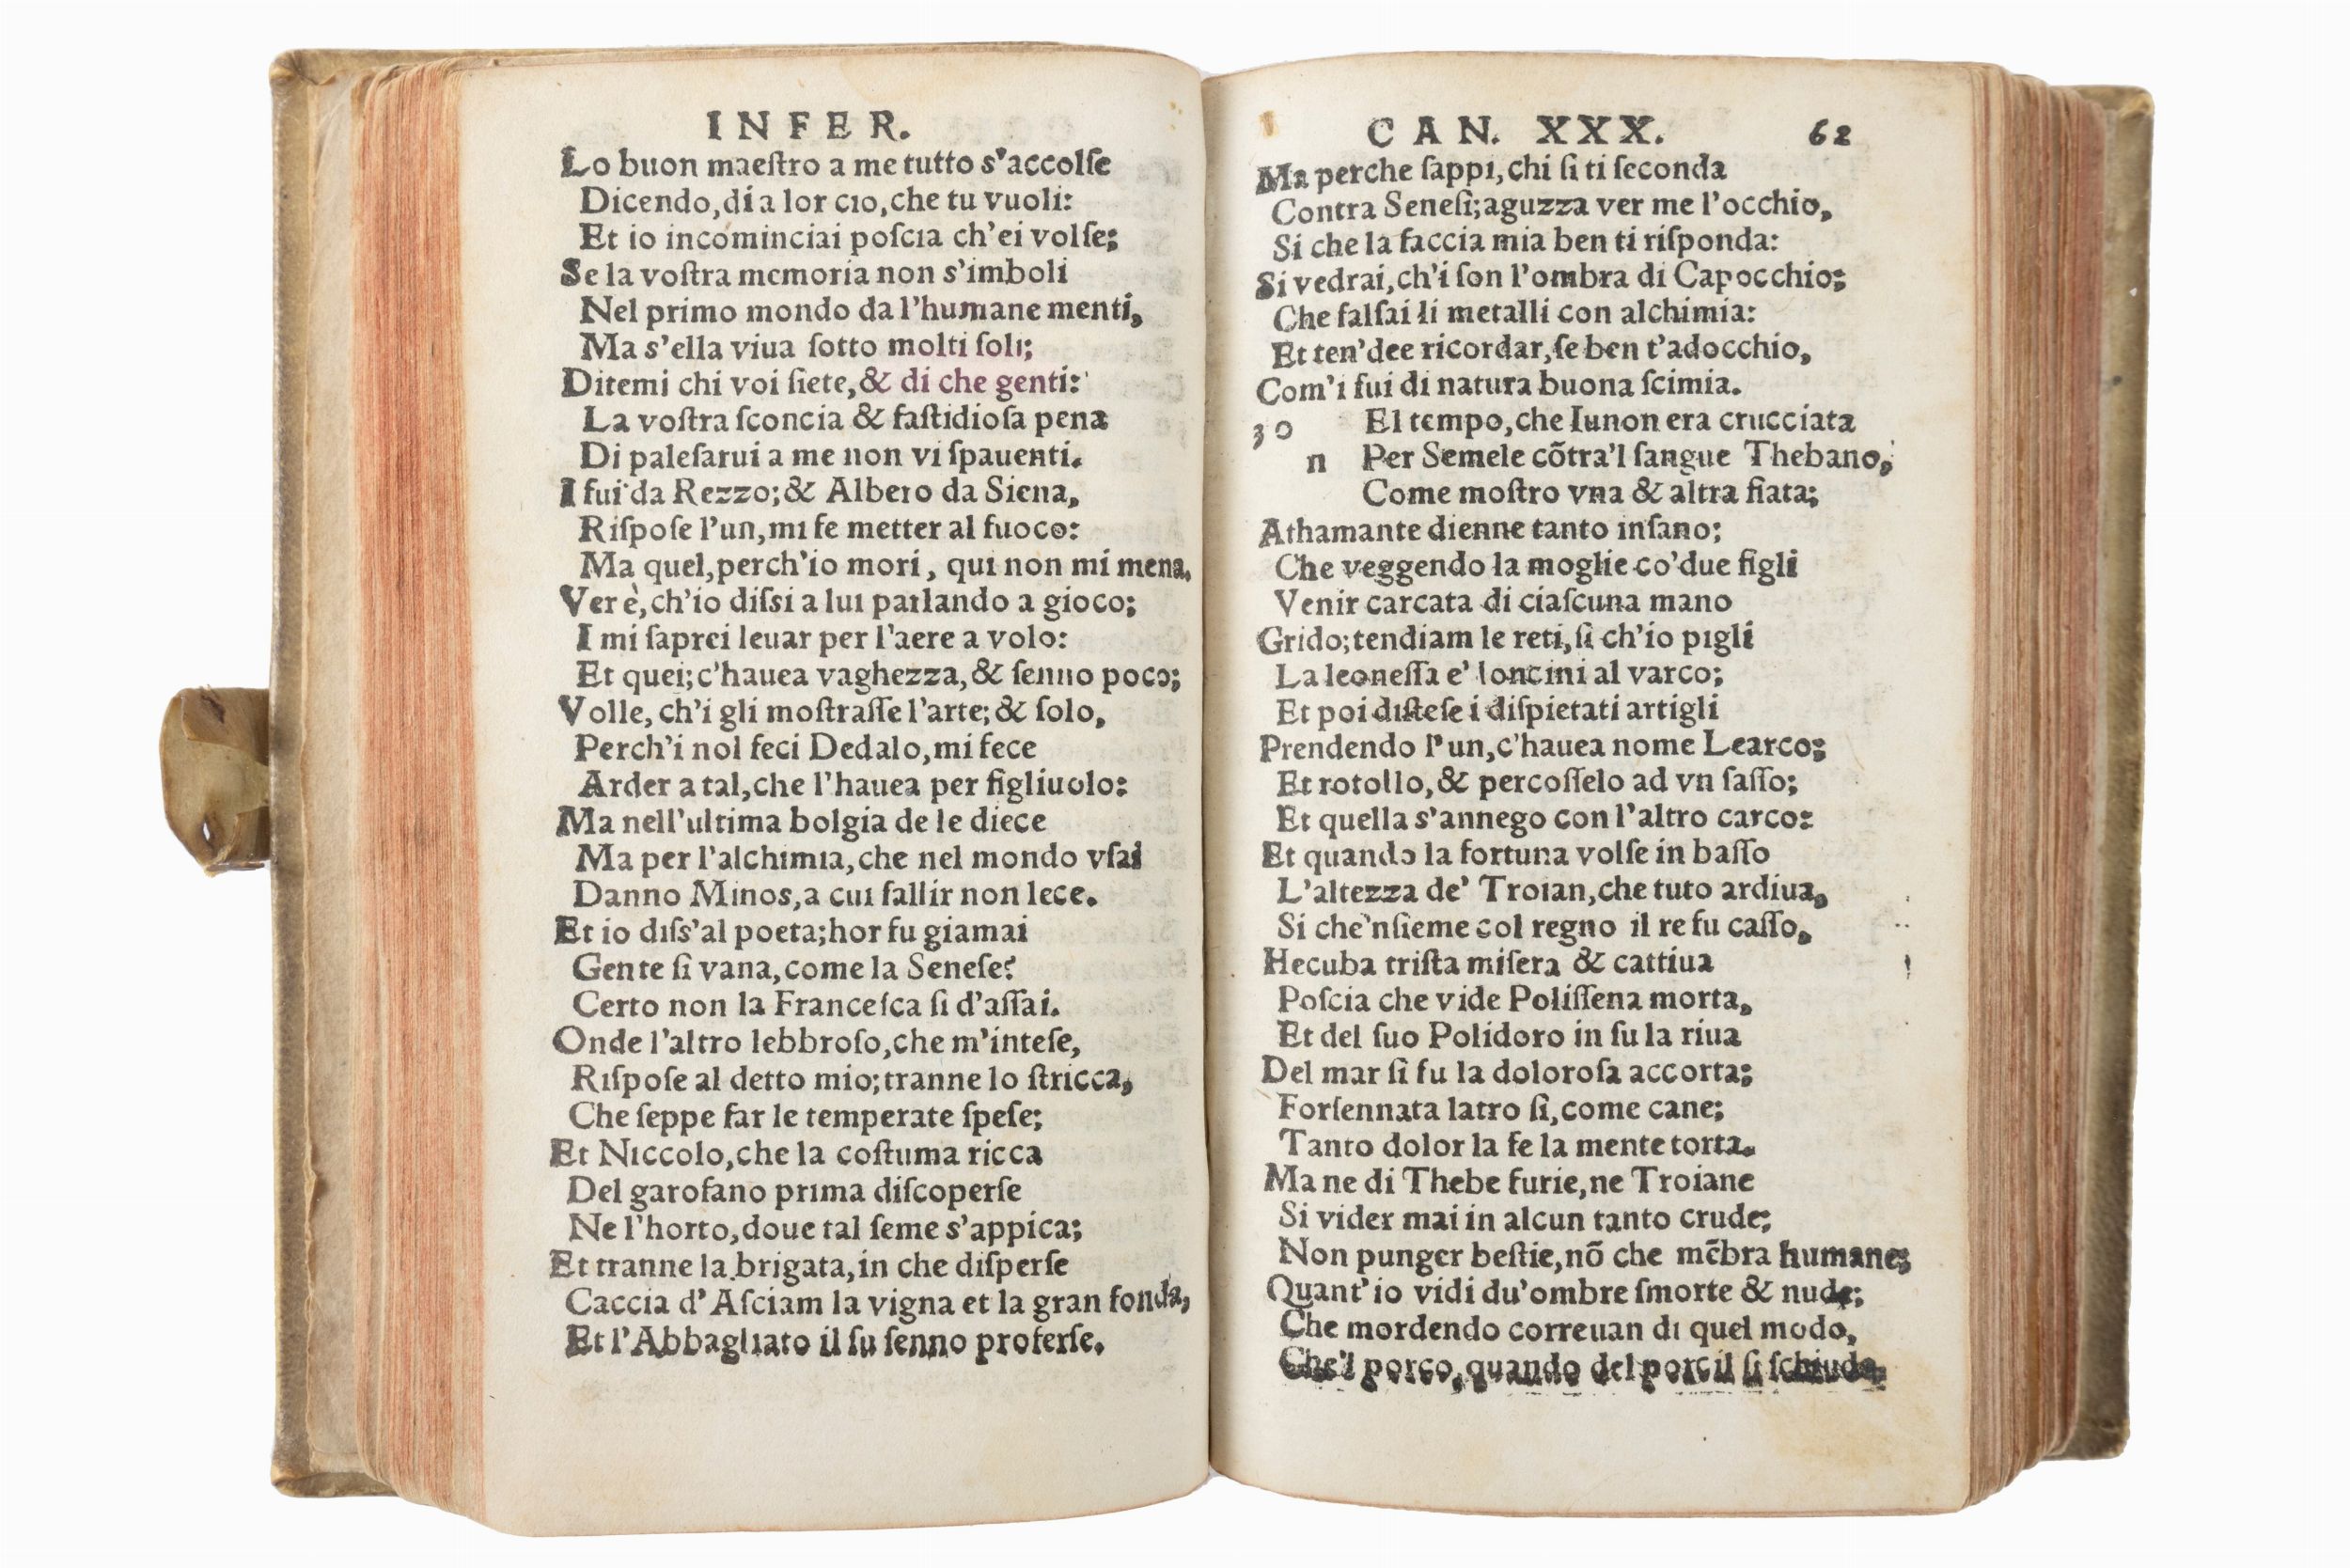 INFER.
Lo buon maeſtro a me tutto s'accolſe
Dicendo, di a lor cıo, che tu vuoli:
Et io incominciai poſcıa ch'ei volſe;
Se la voſtra memoria non s'imboli
Nel primo mondo da l'humane menti,
Ma s'ella viua ſotto molti ſolı;
Ditemi chi voi ſiete, & di che genti:
La voſtra ſconcia & faſtidioſa pena
Di paleſarui a me non vi ſpauenti.
I fui da Rezzo; & Albero da Siena,
Riſpoſe l'un, mı fe metter al fuoco:
Ma quel, perch'io mori, quı non mi mena.
Ver è, ch'io diſsi a luı parlando a gioco;
I mi ſaprei leuar per l'aere a volo:
Et quei; c'hauea vaghezza, & ſenno poco;
Volle, ch'i gli moſtraſſe l'arte; & ſolo,
Perch'i nol feci Dedalo, mi fece
Arder a tal, che l'hauea per figliuolo:
Ma nell'ultima bolgia de le diece
Ma per l'alchımıa, che nel mondo vſai
Danno Minos, a cuı fallir non lece.
Et io diſs'al poeta; hor fu giamai
Gente ſi vana, come la Seneſe?
Certo non la Franceſca ſi d'aſſai.
Onde l'altro lebbroſo, che m'inteſe,
Rıſpoſe al detto mio; tranne lo ſtricca,
Che ſeppe far le temperate ſpeſe;
Et Nıccolo, che la coſtuma ricca
Del garofano prıma diſcoperſe
Ne l'horto, doue tal ſeme s'appica;
Et tranne la brigata, in che diſperſe
Caccia d'Aſciam la vigna et la gran fonda,
Et l'Abbaglıato il ſu ſenno proferſe.
CAN. XXX. 62
Ma perche ſappı, chi ſi ti ſeconda
Contra Seneſi; aguzza ver me l'occhio,
Si che la faccia mia ben ti riſponda:
Si vedrai, ch'i ſon l'ombra di Capocchio;
Che falſai li metalli con alchimia:
Et ten'dee ricordar, ſe ben t'adocchio,
Com'i fui di natura buona ſcimia.
30 El tempo, che Iunon era crucciata
n Per Semele cõtra'l ſangue Thebano,
Come moſtro vna & altra fiata;
Athamante dienne tanto inſano;
Che veggendo la moglie co'due figli
Venir carcata di ciaſcuna mano
Grido; tendiam le reti, ſi ch'io pıgli
La leoneſſa e' loncini al varco;
Et poi diſteſe i diſpietati artigli
Prendendo l'un, c'hauea nome Learco;
Et rotollo, & percoſſelo ad vn ſaſſo;
Et quella s'annego con l'altro carco:
Et quando la fortuna volſe in baſſo
L'altezza de' Troıan, che tuto ardiua,
Si che'nſieme col regno il re fu caſſo,
Hecuba triſta miſera & cattiua
Poſcia che vide Poliſſena morta,
Et del ſuo Polidoro in ſu la riua
Del mar ſi fu la doloroſa accorta;
Forſennata latro ſi, come cane;
Tanto dolor la fe la mente torta.
Ma ne di Thebe furie, ne Troiane
Si vider mai in alcun tanto crude;
Non punger beſtie, nõ che mẽbra humane;
Quant'io vidi du'ombre ſmorte & nude;
Che mordendo correuan dı quel modo,
Che'l porco, quando del porcil ſi ſchiude.